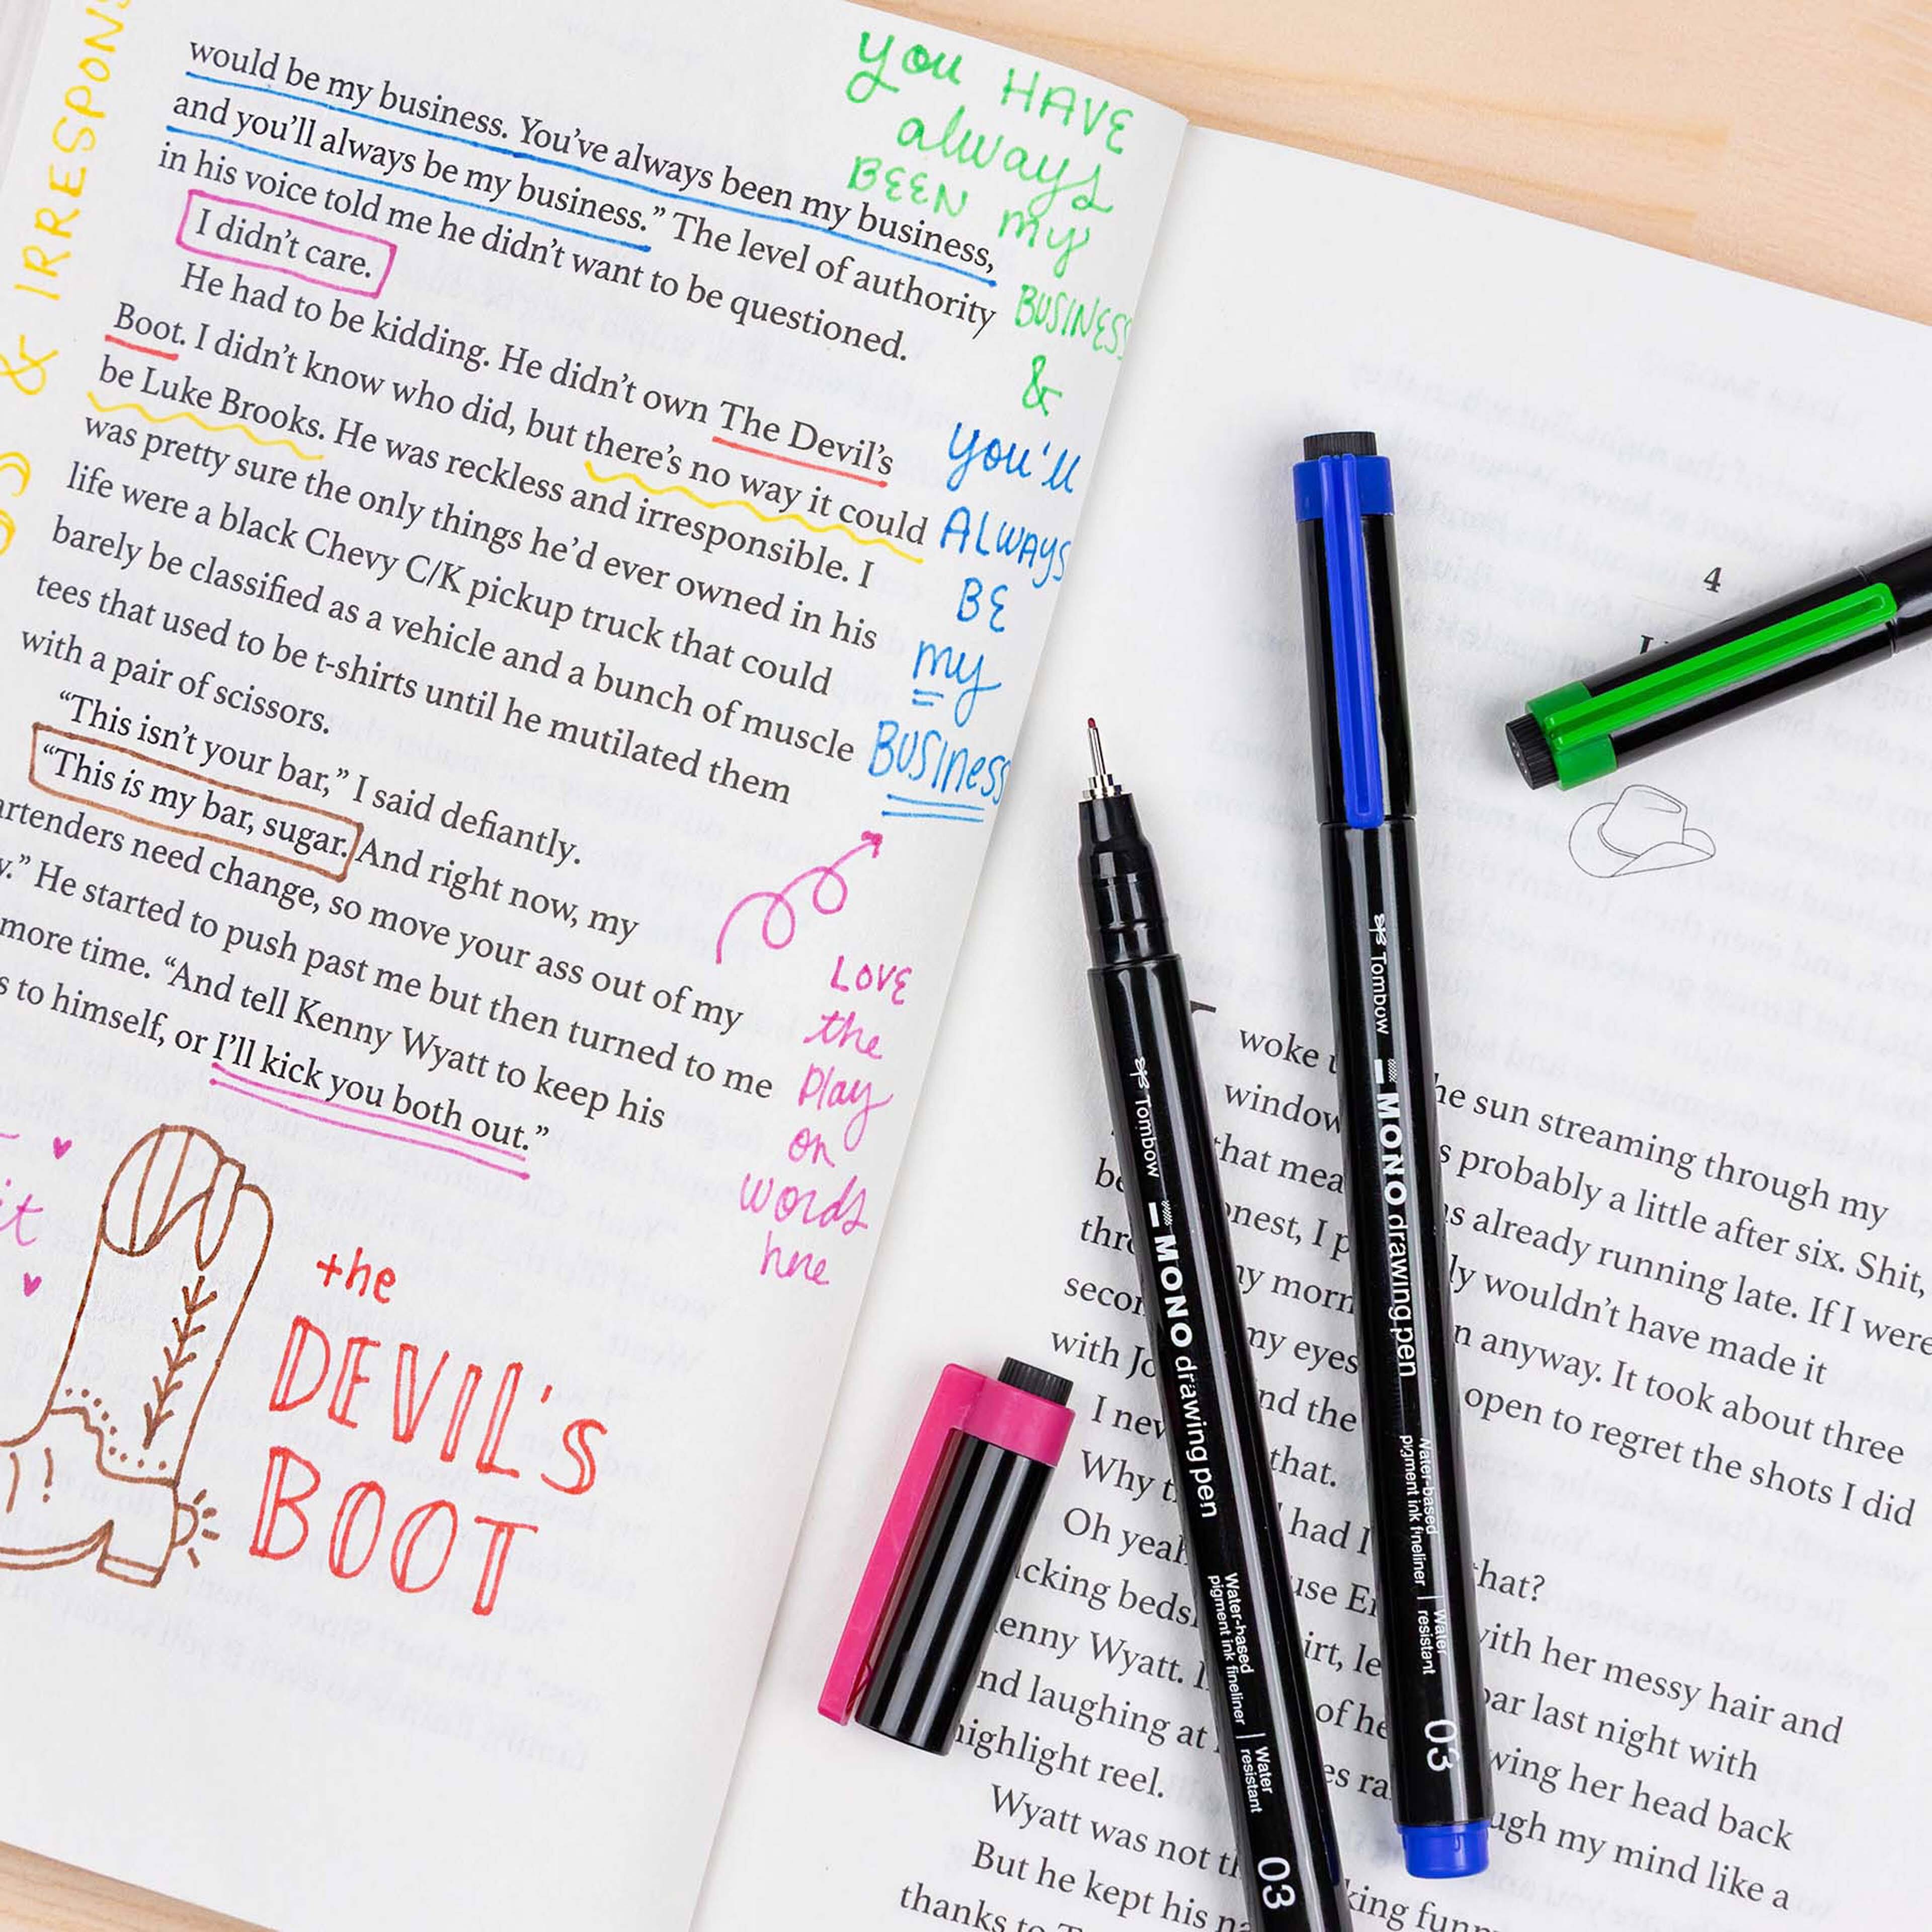 would be my business. You've always been my business,
and you'll always be my business.” The level of authority
in his voice told me he didn't want to be questioned.
I didn't care.
He had to be kidding. He didn't own The Devil's
Boot. I didn't know who did, but there's no way it could
be Luke Brooks. He was reckless and irresponsible. I
was pretty sure the only things he'd ever owned in his
life were a black Chevy C/K pickup truck that could
barely be classified as a vehicle and a bunch of muscle
tees that used to be t-shirts until he mutilated them
with a pair of scissors.
“This isn't your bar,” I said defiantly.
“This is my bar, sugar. And right now, my
need change, so move your ass out of my
He started to push past me but then turned to me
more time. “And tell Kenny Wyatt to keep his
to himself, or I'll kick you both out.”
& IRRESPONS
you HAVE
always
BEEN my
BUSINESS
&
you'll
ALWAYS
BE
my
BUSINess
LOVE
the
play
on
words
here
it
the
DEVIL'S
BOOT
4
woke he sun streaming through my
window s probably a little after six. Shit,
that mea s already running late. If I were
be onest, I p ly wouldn't have made it
thr my morn n anyway. It took about three
secon my eyes open to regret the shots I did
with Jo nd the
I nev that.
Why had I that?
Oh yeah use E with her messy hair and
cking beds irt, le bar last night with
enny Wyatt. of he wing her head back
nd laughing at es ra ugh my mind like a
highlight reel.
Wyatt was not
But he kept his king funn
thanks to
Tombow
MONO drawing pen
Water-based
pigment ink fineliner
Water
resistant
03
Tombow
MONO drawing pen
Water-based
pigment ink fineliner
Water
resistant
03